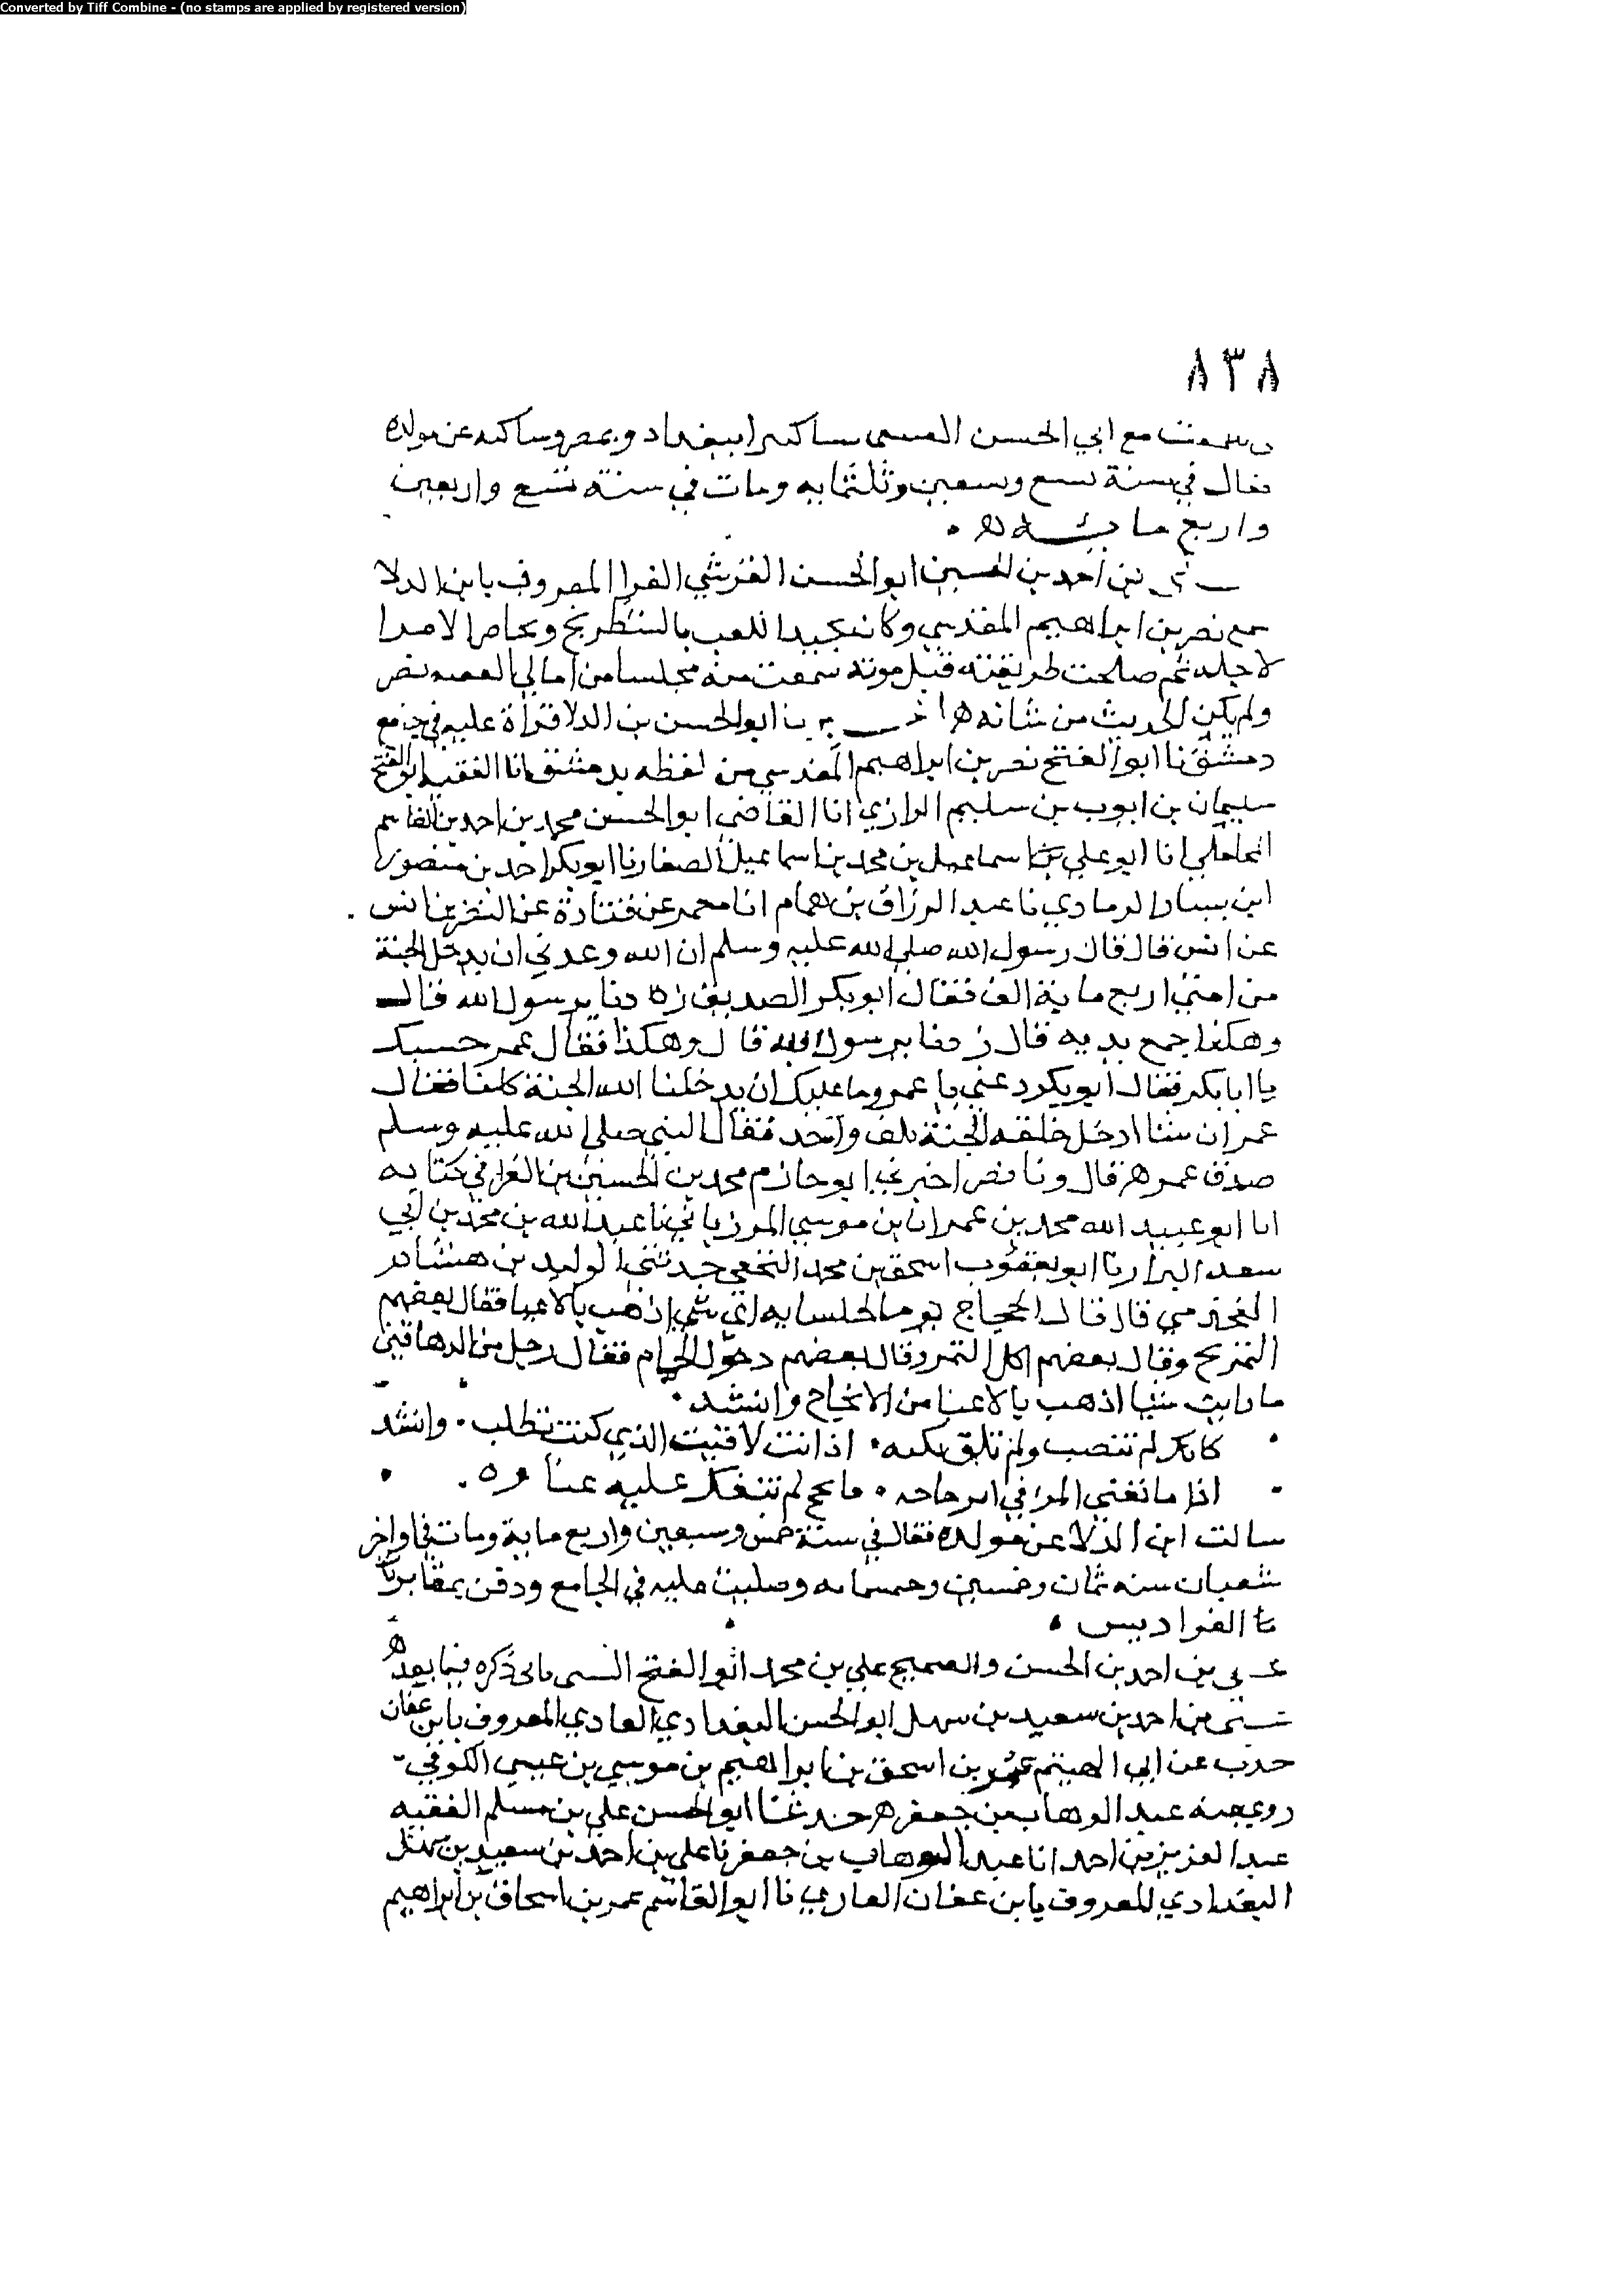 Converted by Tiff Combine - (no stamps are applied by registered version)
٨٣٨
وسمعت مع ابي الحسن ببغداد وبمصر وسالته عن مولده
فقال في سنة تسع وسعين وثلثمايه ومات في سنة تسع واربعين
واربع مائة
بن احمد بن الحسين ابو الحسن القرشي الفرا المعروف بابن الدلا
سمع نصر بن ابراهيم المقدسي وكان يجيد اللعب بالشطرنج الامرا
لاجله ثم صلحت طريقته قبل موته سمعت منه مجلسا من امالي الفقيه نصر
ولم يكن الحديث من شانه ابو الحسن بن الدلا قراة عليه في جامع
دمشق نا ابو الفتح نصر بن ابراهيم المقدسي من لفظه بدمشق انا الفقيه ابو الفتح
سليمان بن ايوب بن سليم الرازي انا القاضي ابو الحسن محمد بن احمد بن القاسم
المحاملي انا ابو علي اسماعيل بن محمد بن اسماعيل الصفار نا ابو بكر احمد بن منصور
ابن يسار الرمادي نا عبد الرزاق بن همام انا معمر عن قتادة عن النضر بن انس
عن انس قال قال رسول الله صلى الله عليه وسلم ان الله وعدني ان يدخل الجنة
من امتي اربع ماية الف فقال ابو بكر الصديق زدنا يرسول الله قال
وهكذا جمع يديه قال زدنا يرسول الله قال وهكذا فقال عمر حسبك
يا ابا بكر فقال ابو بكر دعني يا عمر وما عليك ان يدخلنا الله الجنة كلنا فقال
عمر ان شا ادخل خلقه الجنة بكف واحد فقال النبي صلى الله عليه وسلم
صدق عمر قال ونا نصر اخبرني ابو حازم محمد بن الحسين بن الفرا في كتابه
انا ابو عبيد الله محمد بن عمران بن موسي المرزباني نا عبد الله بن محمد بن ابي
سعد البزار نا ابو يعقوب اسحق بن محمد النخعي حدثني الوليد بن هشام
القحذمي قال قال الحجاج يوما لجلسايه اي شي اذهب بالاعيا فقال بعضهم
التمريخ وقال بعضهم اكل التمر وقال بعضهم دخول الحمام فقال رجل من الدهاقين
ما رايت شيا اذهب بالاعيا من الانجاح وانشد
كانك لم تنصب ولم تلق اذا انت لاقيت الذي كنت تطلب وانشد
اذا ما تعني المرء في حاجة لم عليه عناوه
سالت ابن الدلا عن مولده فقال في سنة خمس وسبعين واربع ماية ومات في اواخر
شعبان سنه ثمان وخمسين وخمسمايه وصليت عليه في الجامع ودفن بمقابر
الفراديس
علي بن احمد بن الحسن والصحيح علي بن محمد ابو الفتح البستي ياتي ذكره فيما بعد
علي بن احمد بن سعيد بن سهل ابو الحسن البغدادي العادي المعروف بابن عفان
حدث عن ابي الهيثم عمر بن اسحق بن ابراهيم بن موسي بن عيسي الكوفي
روي عنه عبد الوهاب بن جعفر حدثنا ابو الحسن علي بن مسلم الفقيه
عبد العزيز بن احمد انا عبد الوهاب بن جعفر نا علي بن احمد بن سعيد بن سهل
البغدادي المعروف بابن عفان العادي نا ابو القاسم عمر بن اسحاق بن ابراهيم